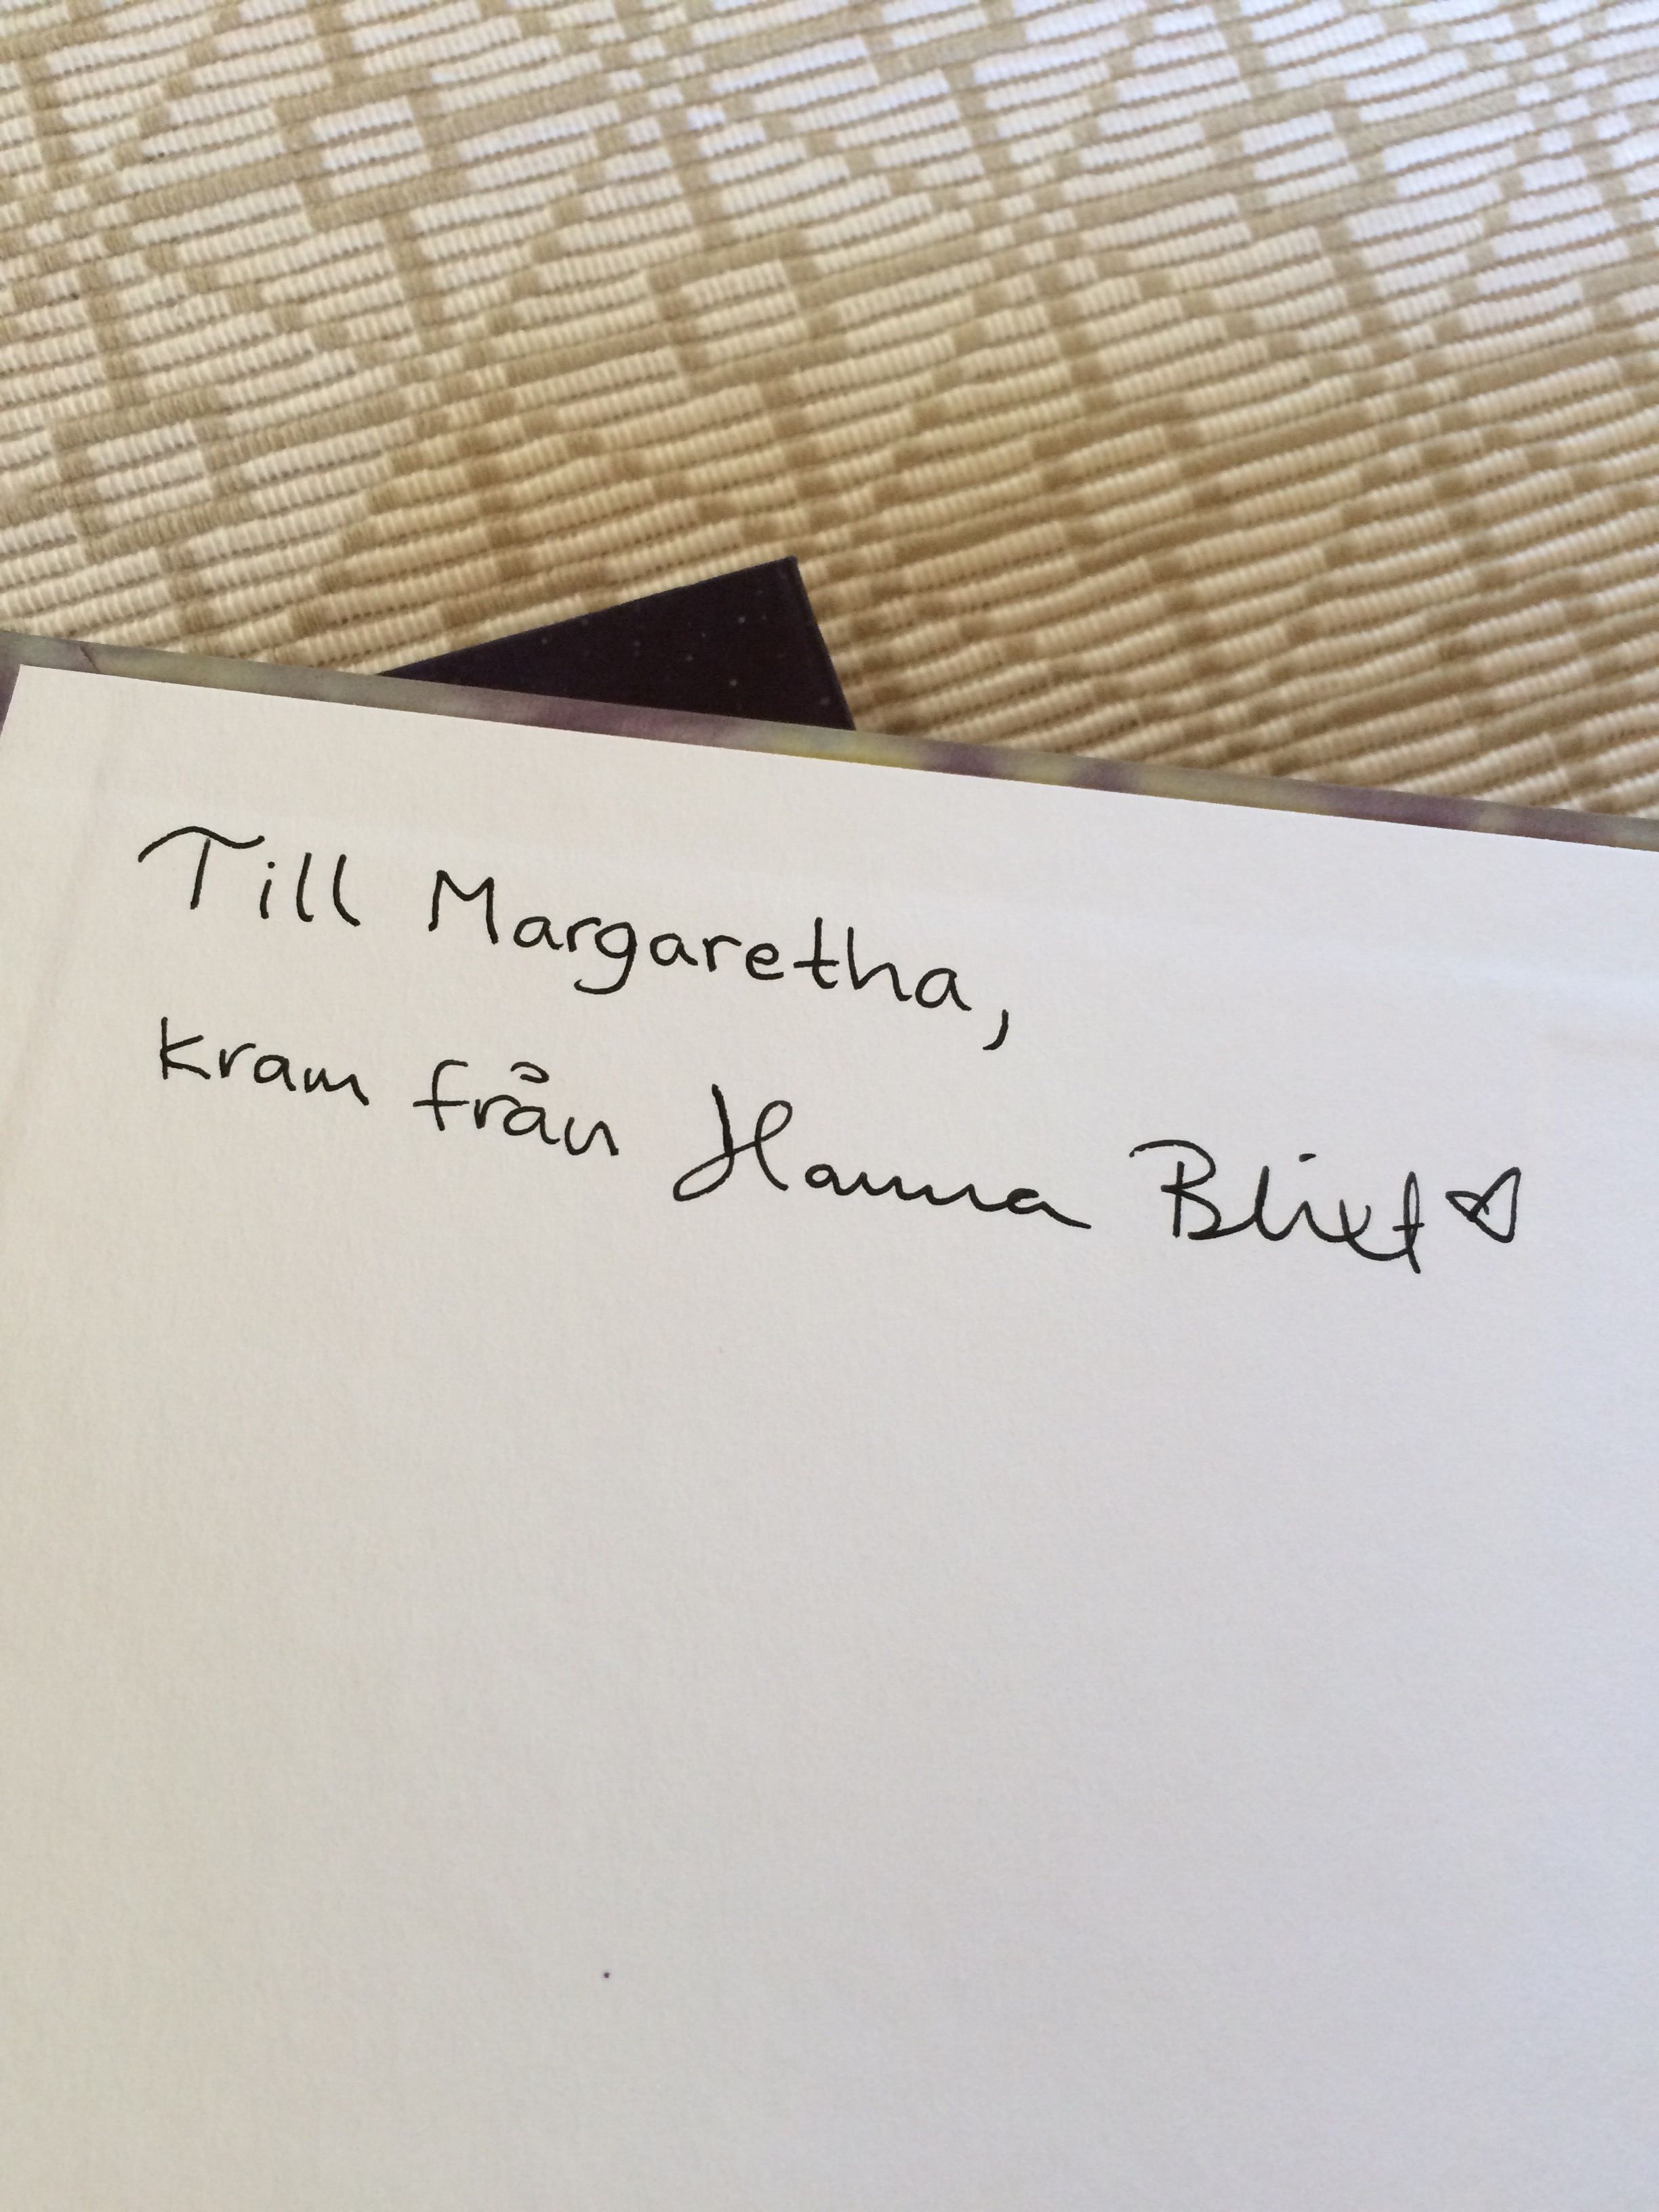 Till Margaretha,
kram från Hanna Blixt ♡